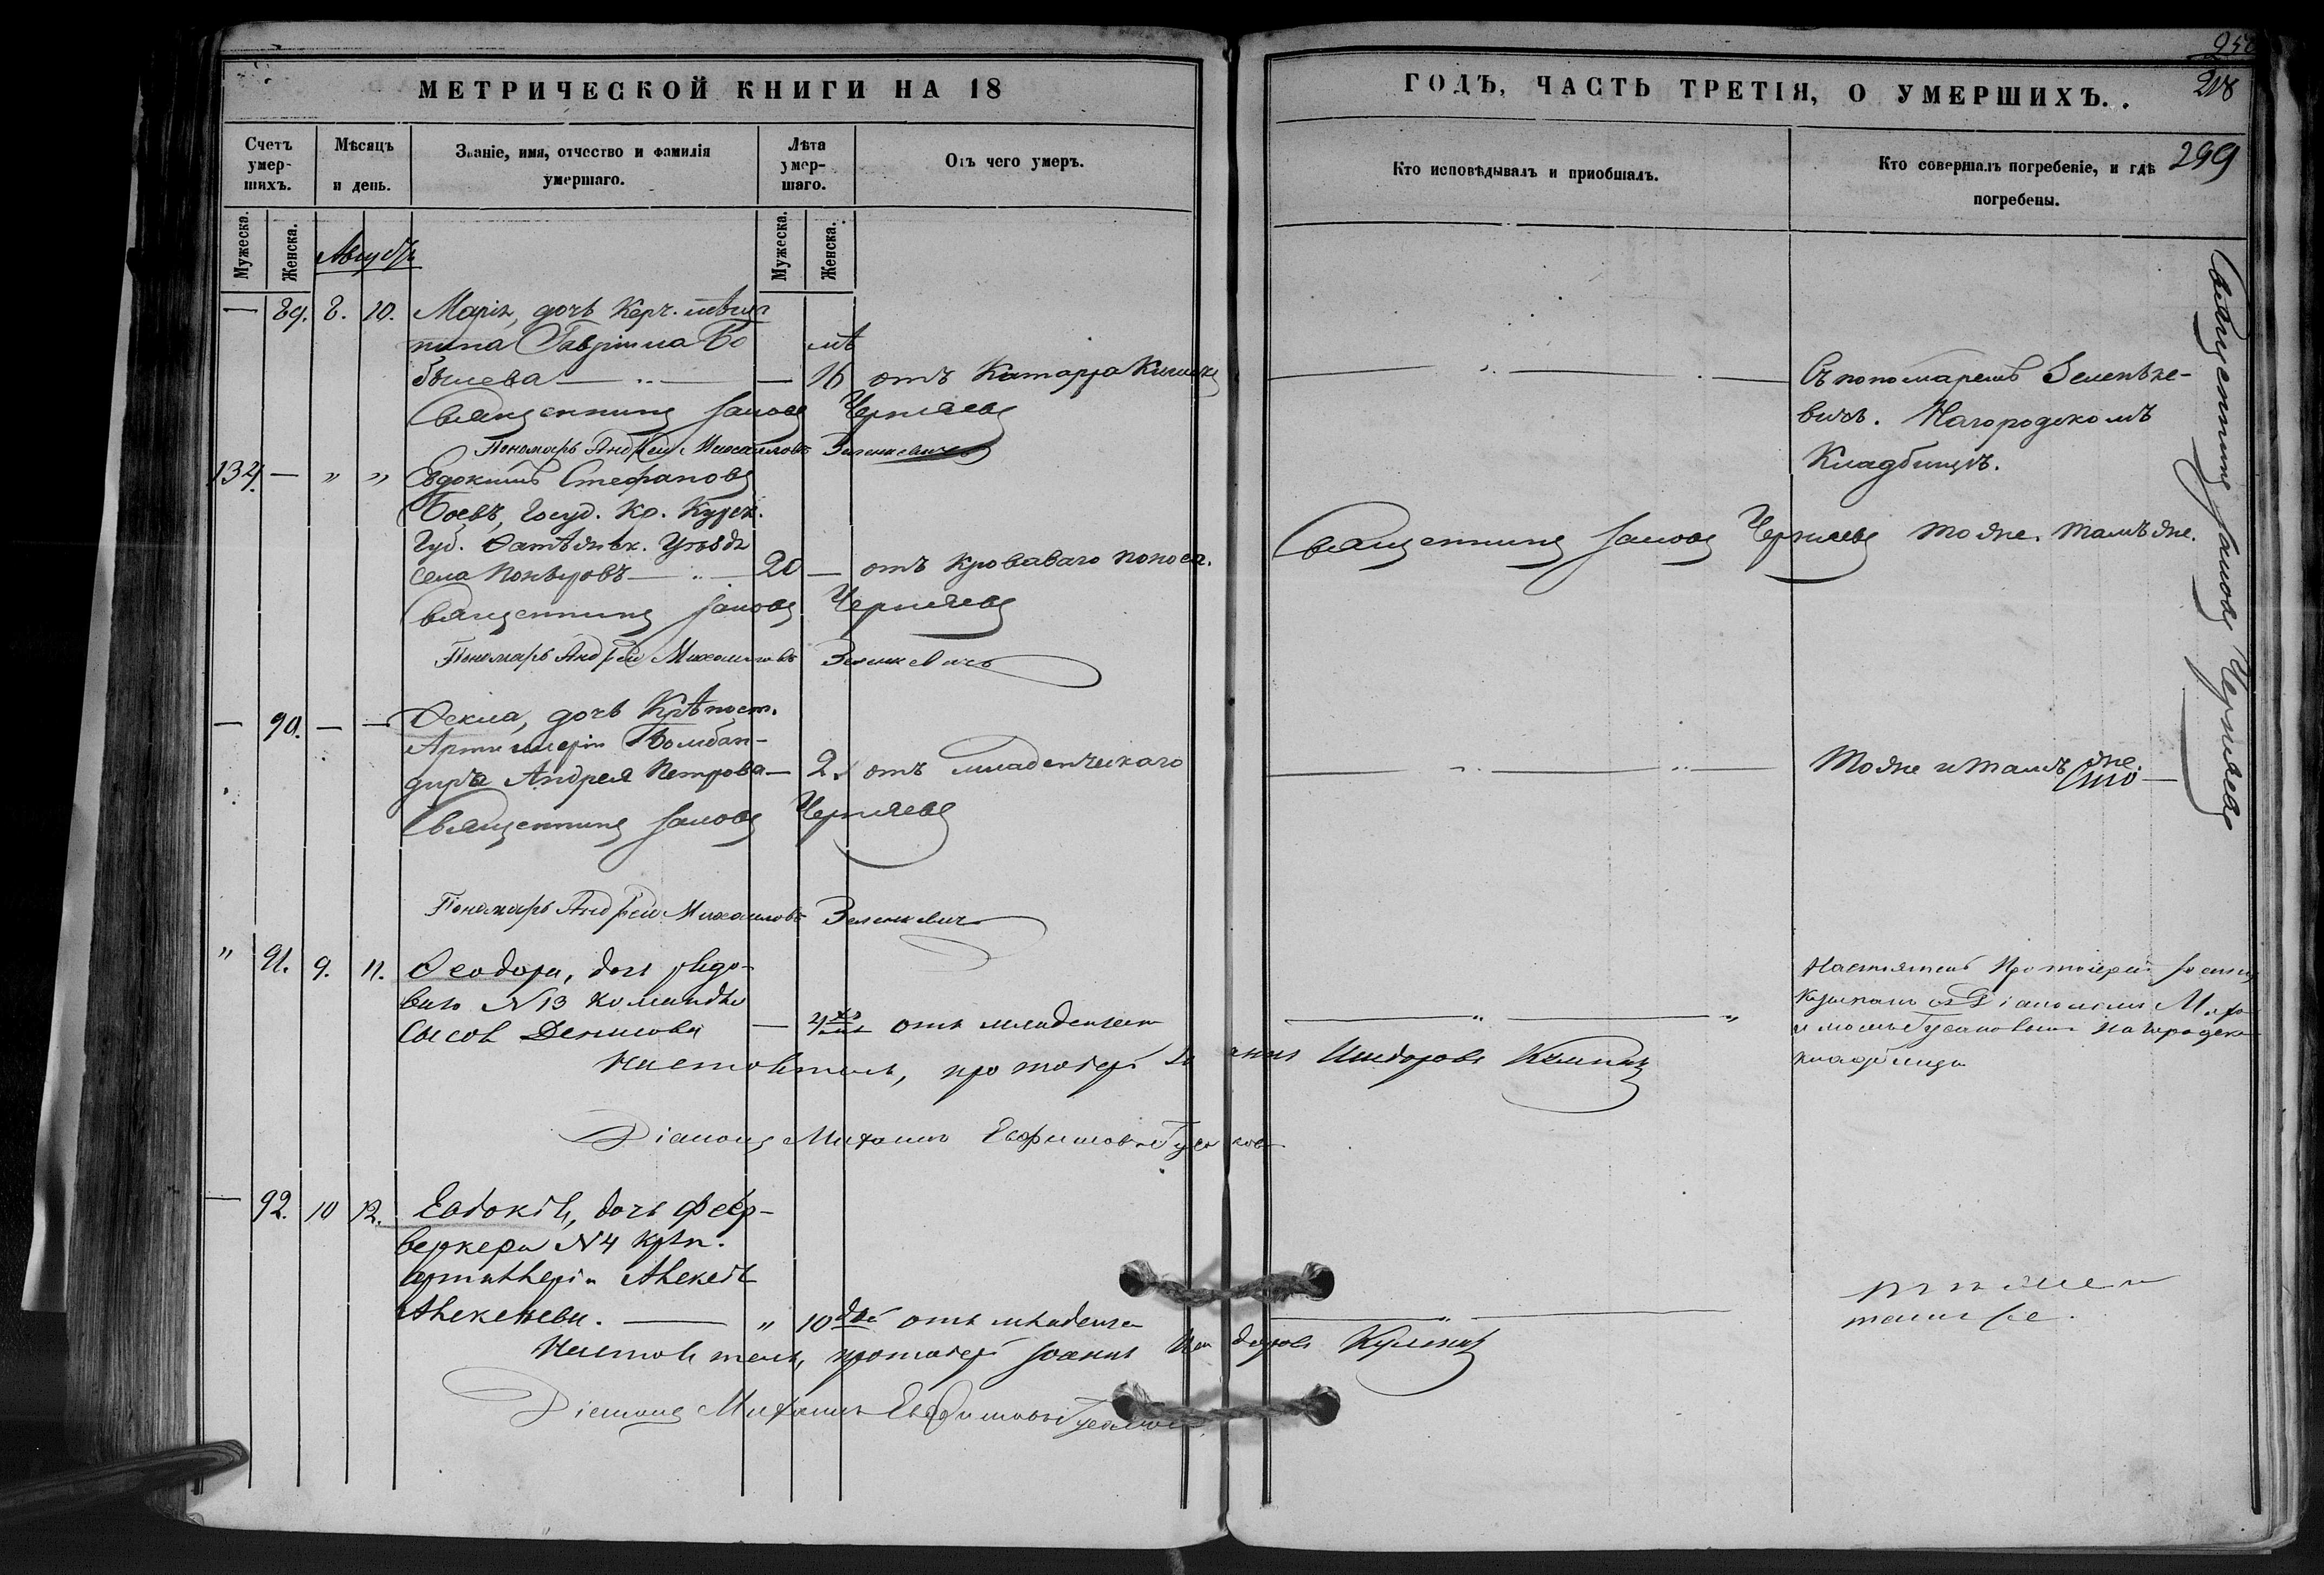 МЕТРИЧЕСКОЙ КНИГИ НА 18
Счетъ умер- шихъ.
Мѣсяцъ и день.
Званіе, имя, отчество и фамилія умершаго.
Лѣта умер- шаго.
Отъ чего умеръ.
Мужеска.
Женска.
Мужеска.
Женска.
Августъ
— 89. 8. 10. Марія, дочь Керч. мѣщан
нина Гавріила Бо
лѣ
былева — „ — — 16 отъ Катарра Кишекъ
Священникъ Іаковъ Черняевъ
Пономарь Андрей Михайловъ Зеленкевичъ
134. — „ „ Евдокимъ Стефановъ
Боевъ, Госуд. Кр. Курск.
Губ. Фатѣжск. Уѣзда
села — „ — 20 — отъ кроваваго поноса.
Священникъ Іаковъ Черняевъ
Пономарь Андрей Михайловъ Зеленкевичъ
— 90. — — Фекла, дочь Крѣпост.
Артиллеріи Бомбан-
дира Андрея Петрова — 2. отъ младенческаго
Священникъ Іаковъ Черняевъ
Пономарь Андрей Михайловъ Зеленкевичъ
„ 91. 9. 11. Феодора, дочь рядо-
ваго N 13 команды
Сысоя Денисова — отъ младенческ
Настоятель, протоіерей Іоаннъ Исидоровъ
Діаконъ Михаилъ Евфимовъ Гусаковъ
— 92. 10 12. Евдокія, дочь Фейр-
веркера N 4 крѣп.
артиллеріи Алексѣя
Алексѣева. — „ 10 дне отъ младенче
Настоятель, протоіерей Іоаннъ Исидоровъ
Діаконъ Михаилъ Евфимовъ Гусаковъ
ГОДЪ, ЧАСТЬ ТРЕТІЯ, О УМЕРШИХЪ.
218
299
Кто исповѣдывалъ и пріобщалъ.
Кто совершалъ погребеніе, и гдѣ погребены.
— „ — Съ пономаремъ Зеленке-
вичъ. На городскомъ
Кладбищѣ.
Священникъ Іаковъ Черняевъ тоже. тамъ же.
— „ — „ — Тоже и тамъ же.
— „ — „ Настоятель Протоіерей Іоаннъ
съ Діакономъ Миха
иломъ Гусаковымъ на городско
кладбищѣ
— „ — тоже и
тамъ же.
Священникъ Іаковъ Черняевъ